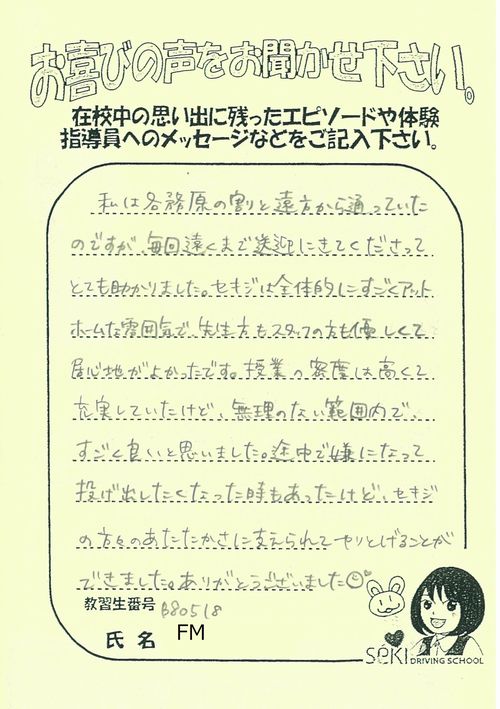 お喜びの声をお聞かせ下さい。
在校中の思い出に残ったエピソードや体験
指導員へのメッセージなどをご記入下さい。
私は各務原の割と遠方から通っていた
のですが、毎回遠くまで送迎にきてくださって
とても助かりました。セキジは全体的にすごくアット
ホームな雰囲気で、先生方もスタッフの方も優しくて
居心地がよかったです。授業の密度は高くて
充実していたけど、無理のない範囲内で、
すごく良いと思いました。途中で嫌になって
投げ出したくなった時もあったけど、セキジ
の方々のあたたかさに支えられてやりとげることが
できました。ありがとうございました
教習生番号 B80518
氏名 FM
SEKI DRIVING SCHOOL